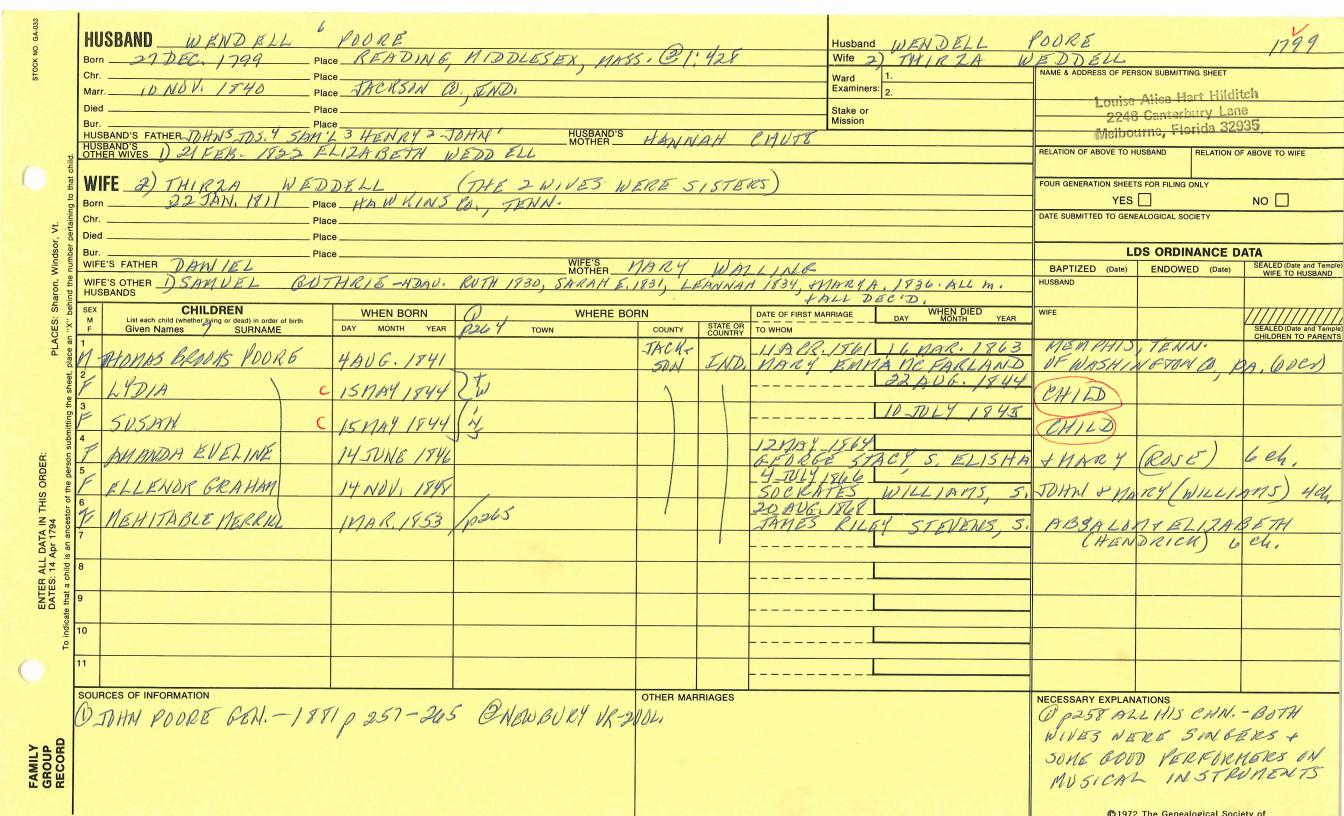 STOCK NO. GA-032
HUSBAND WENDELL 6 POORE
Born 27 DEC. 1799 Place READING, MIDDLESEX, MASS. ② 1:428
Chr. Place
Marr. 10 NOV. 1840 Place JACKSON CO., IND.
Died Place
Bur. Place
HUSBAND'S FATHER JOHN 5 JOS. 4 SAM'L 3 HENRY 2 - JOHN 1 HUSBAND'S MOTHER HANNAH CHUTE
HUSBAND'S OTHER WIVES 1) 21 FEB. 1822 ELIZABETH WEDDELL
WIFE 2) THIRZA WEDDELL (THE 2 WIVES WERE SISTERS)
Born 22 JAN. 1811 Place HAWKINS CO., TENN.
Chr. Place
Died Place
Bur. Place
WIFE'S FATHER DANIEL WIFE'S MOTHER MARY WALLING
WIFE'S OTHER HUSBANDS 1) SAMUEL GUTHRIE - 4 DAU. RUTH 1830, SARAH E. 1831, LEANNAH 1834, & MARY A. 1836. ALL m.
& ALL DEC'D.
Husband WENDELL POORE 1799
Wife 2) THIRZA WEDDELL
Ward Examiners: 1.
2.
Stake or Mission
NAME & ADDRESS OF PERSON SUBMITTING SHEET
Louise Alice Hart Hilditch
2248 Canterbury Lane
Melbourne, Florida 32935
RELATION OF ABOVE TO HUSBAND RELATION OF ABOVE TO WIFE
FOUR GENERATION SHEETS FOR FILING ONLY
YES NO
DATE SUBMITTED TO GENEALOGICAL SOCIETY
LDS ORDINANCE DATA
BAPTIZED (Date) ENDOWED (Date) SEALED (Date and Temple) WIFE TO HUSBAND
HUSBAND
WIFE
SEALED (Date and Temple) CHILDREN TO PARENTS
SEX M F
CHILDREN
List each child (whether living or dead) in order of birth
Given Names 7 SURNAME
WHEN BORN
DAY MONTH YEAR
① p264
WHERE BORN
TOWN COUNTY STATE OR COUNTRY
DATE OF FIRST MARRIAGE
TO WHOM
WHEN DIED
DAY MONTH YEAR
1 M THOMAS BROOKS POORE 4 AUG. 1841 JACKSON IND. 11 APR. 1861 16 MAR. 1863 MEMPHIS, TENN.
MARY EMMA MC FARLAND OF WASHINGTON CO., PA.
2 F LYDIA C 15 MAY 1844 TW 22 AUG. 1844 CHILD
3 F SUSAN C 15 MAY 1844 10 JULY 1845 CHILD
4 F AMANDA EVELINE 14 JUNE 1846 12 MAY 1864
GEORGE STACY, S. ELISHA & MARY (ROSE) 6 ch.
5 F ELLENOR GRAHAM 14 NOV. 1848 4 JULY 1866
SOCRATES WILLIAMS, S. JOHN & MARY (WILLIAMS) 4 ch.
6 F MEHITABLE MERRILL 1 MAR. 1853 p265 20 AUG. 1868
JAMES RILEY STEVENS, S. ABSALOM & ELIZABETH
(HENDRICK) 6 ch.
7
8
9
10
11
SOURCES OF INFORMATION
① JOHN POORE GEN. - 1881 p 257-265 ② NEWBURY VR-
OTHER MARRIAGES
NECESSARY EXPLANATIONS
① p258 ALL HIS CHN. - BOTH
WIVES WERE SINGERS &
SOME GOOD PERFORMERS ON
MUSICAL INSTRUMENTS
©1972 The Genealogical Society of
PLACES: Sharon, Windsor, Vt.
ENTER ALL DATA IN THIS ORDER:
DATES: 14 Apr 1794
To indicate that a child is an ancestor of the person submitting the sheet, place an "X" behind the number pertaining to that child.
FAMILY GROUP RECORD